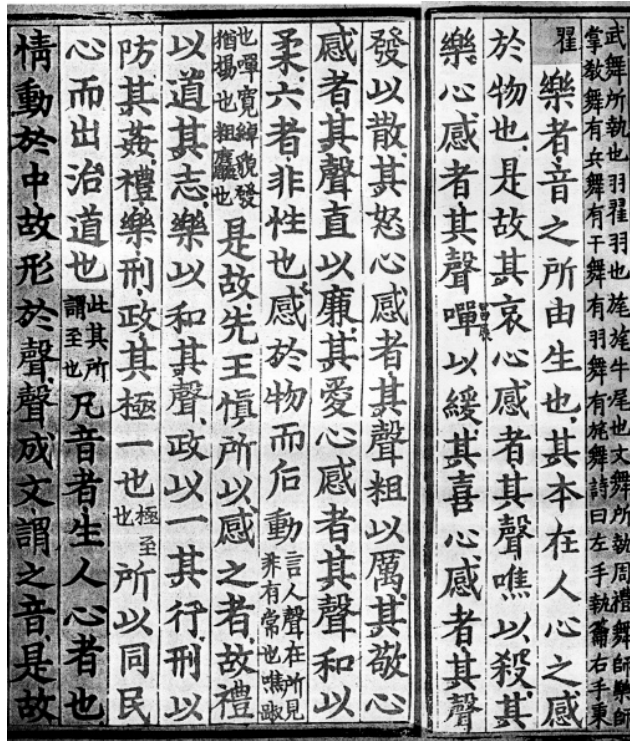 武舞所執也羽翟羽也旄旄牛尾也文舞所執周禮舞師樂師
掌教舞有兵舞有干舞有羽舞有旄舞詩曰左手執籥右手秉
翟樂者音之所由生也其本在人心之感
於物也是故其哀心感者其聲噍以殺其
樂心感者其聲嘽昌展以緩其喜心感者其聲
發以散其怒心感者其聲粗以厲其敬心
感者其聲直以廉其愛心感者其聲和以
柔六者非性也感於物而后動言人聲在所見非有常也噍踧
也嘽寬綽貌發猶揚也粗麤也是故先王慎所以感之者故禮
以道其志樂以和其聲政以一其行刑以
防其姦禮樂刑政其極一也極至也所以同民
心而出治道也此其所謂至也凡音者生人心者也
情動於中故形於聲聲成文謂之音是故